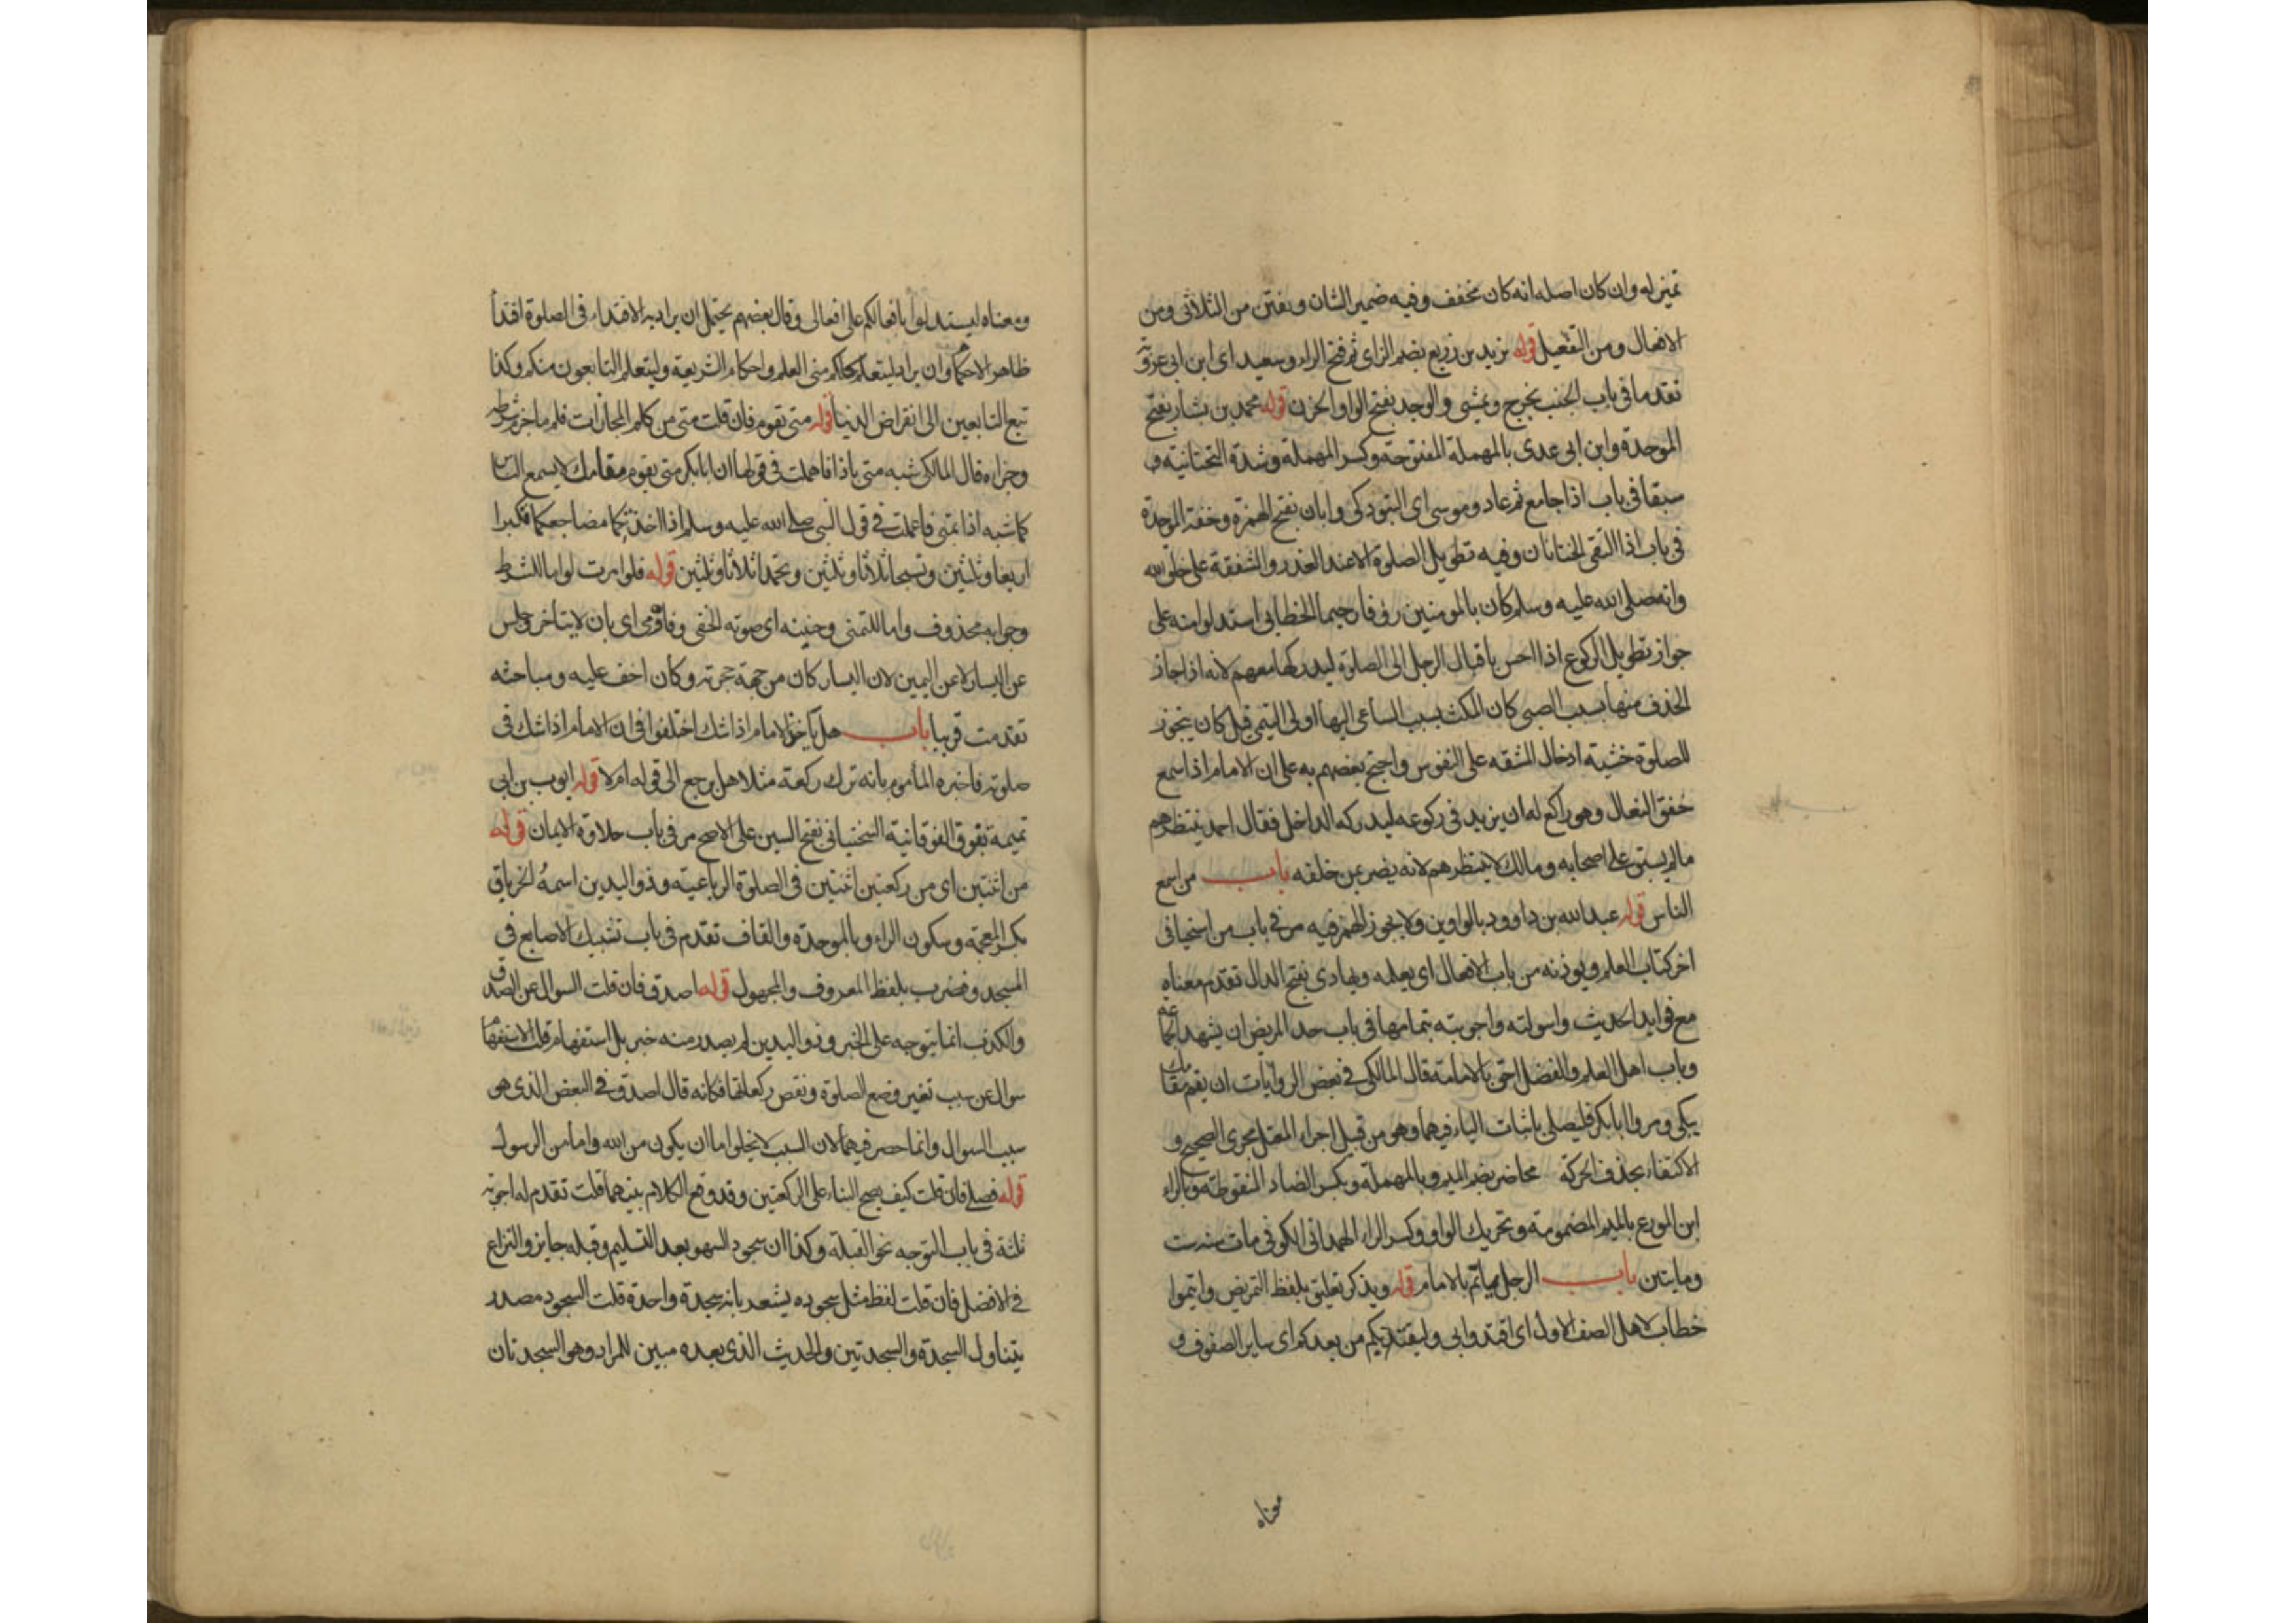 تميز له وان كان اصله انه كان مخفف وفيه ضمير الشان وتفتن من الثلاثى ومن
الافعال ومن التفعيل قوله يزيد بن زريع بضم الزاى ثم فتح الراء وسعيد اى ابن ابى عروبة
تقدما فى باب الجنب يخرج ويمشى والوجد بفتح الواو الحزن قوله محمد بن بشار بفتح
الموحدة وابن ابى عدى بالمهملة المفتوحة وكسر المهملة وشدة التحتانية و
سبقا فى باب اذا جامع ثم عاد وموسى اى التبوذكى وابان بفتح الهمزة وخفة الموحدة
فى باب اذا التقى الختانان وفيه تطويل الصلوة الا عند العذر والشفقة على خلق الله
وانه صلى الله عليه وسلم كان بالمومنين رؤفا رحيما الخطابى استدلوا منه على
جواز تطويل الركوع اذا احس باقبال الرجل الى الصلوة ليدركها معهم لانه اذا جاز
الحذف منها بسبب الصبى كان المكث بسبب الساعى اليها اولى التيمى قيل كان يتجوز
للصلوة خشية ادخال المشقه على النفوس واحتج بعضهم به على ان الامام اذا سمع
خفق النعال وهو راكع له ان يزيد فى ركوعه ليدركه الداخل فقال احمد ينتظرهم
مالم يستق على اصحابه ومالك لا ينتظرهم لانه يضر بمن خلفه باب من اسمع
الناس قوله عبد الله بن داوود بالواوين ولا يجوز الهمز فيه مر فى باب من استحيا فى
اخر كتاب العلم ويوذنه من باب الافعال اى يعلمه ويهادى بفتح الدال تقدم معناه
مع فوايد الحديث واسولته واجوبته بتمامها فى باب حد المريض ان يشهد الجماعة
وباب اهل العلم والفضل احق بالامامة قال المالكى فى بعض الروايات ان يقم مقامك
يبكى ومروا ابا بكر فليصلى باثبات الياء فيهما وهو من قبيل اجراء المعتل مجرى الصحيح و
الاكتفاء بحذف الحركة محاضر بضم الميم وبالمهملة وبكسر الضاد المنقوطة وبالراء
ابن المورع بالميم المضمومة وتحريك الواو وكسر الراء الهمدانى الكوفى مات سنة ست
ومايتين باب الرجل ياتم بالامام قوله ويذكر تعليق بلفظ التمريض وايتموا
خطاب لاهل الصف الاول اى اقتدوا بى وليقتد بكم من بعدكم اى ساير الصفوف و
معناه
ومعناه ليستدلوا بافعالكم على افعالى وقال بعضهم يحتمل ان يراد به الاقتداء فى الصلوة اقتدا
ظاهر الاحكام وان يراد ليتعلم كلكم منى العلم واحكام الشريعة وليتعلم التابعون منكم وكذا
تبع التابعين الى انقراض الدنيا قوله متى تقوم فان قلت متى من كلم المجازات فلم ما جزم شرطه
وجزاه قال المالكى شبه متى باذا فاهملت فى قولها ان ابا بكر متى يقوم مقامك لا يسمع الناس
كما شبه اذا بمتى فاعملت فى قول النبى صلى الله عليه وسلم اذا اخذتما مضاجعكما فكبرا
اربعا وثلثين وتسبحا ثلاثا وثلثين وتحمدا ثلاثا وثلثين قوله فلو امرت لو اما للشرط
وجوابه محذوف واما للتمنى وحنينه اى صوته الخفى وفاومى اى بان لا يتاخر وجلس
عن اليسار لا عن اليمين لان اليسار كان من جهة حجرته وكان اخف عليه ومباحثه
تقدمت قريبا باب هل ياخذ الامام اذا شك اختلفوا فى ان الامام اذا شك فى
صلوته فاخبره المأموم بانه ترك ركعة مثلا هل يرجع الى قوله ام لا قوله ايوب بن ابى
تميمة بفوق الفوقانية السختيانى بفتح السين على الاصح مر فى باب حلاوة الايمان قوله
من اثنتين اى من ركعتين اثنتين فى الصلوة الرباعية وذو اليدين اسمه الخرباق
بكسر المعجمة وسكون الراء وبالموحدة والقاف تقدم فى باب تشبيك الاصابع فى
المسجد وقصرت بلفظ المعروف والمجهول قوله اصدق فان قلت السوال عن الصدق
والكذب انما يتوجه على الخبر وذو اليدين لم يصدر منه خبر بل استفهام قلت الاستفهام
سوال عن سبب تغير وضع الصلوة ونقص ركعاتها فكانه قال اصدق فى النقص الذى هو
سبب السوال وانما حصر فيهما لان السبب لا يخلوا اما ان يكون من الله واما من الرسول
قوله فصلى فان قلت كيف يصح البناء على الركعتين وقد وقع الكلام بينهما قلت تقدم له اجوبة
ثلثة فى باب التوجه نحو القبلة وكذا ان سجود السهو بعد التسليم وقبله جايز والنزاع
فى الافضل فان قلت لفظ مثل سجوده يشعر بانه سجدة واحدة قلت السجود مصدر
يتناول السجدة والسجدتين والحديث الذى بعده مبين للمراد وهو السجدتان